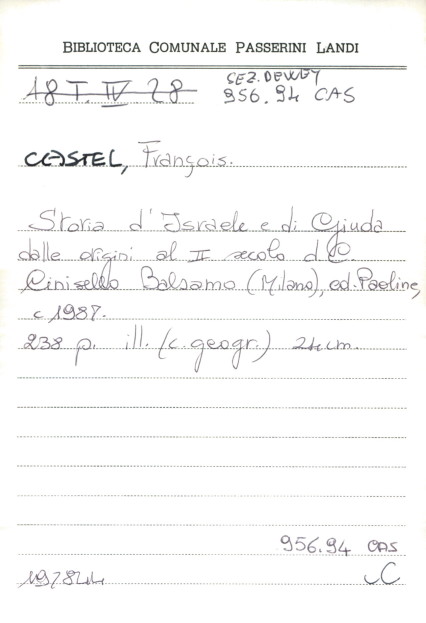 BIBLIOTECA COMUNALE PASSERINI LANDI
SEZ. DEWEY
18 I. IV 28 956.94 CAS
CASTEL, François.
Storia d'Israele e di Giuda
dalle origini al II secolo d.C.
Cinisello Balsamo (Milano), ed. Paoline,
c 1987.
238 p. ill. (c. geogr.) 24 cm.
956.94 CAS
197844